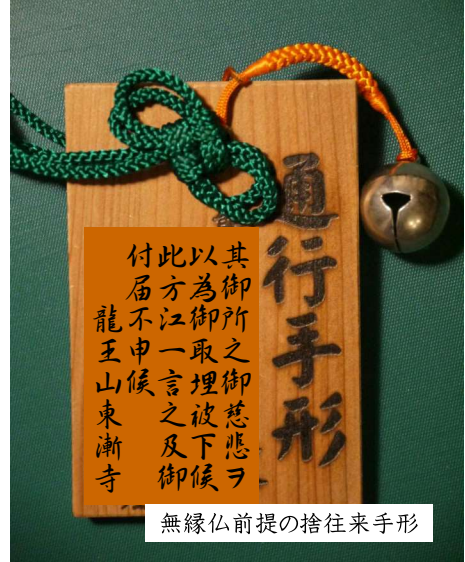 通行手形
其御所之御慈悲ヲ
以為御取埋被下候
此方江一言之及御
付届不申候
龍王山東漸寺
無縁仏前提の捨往来手形